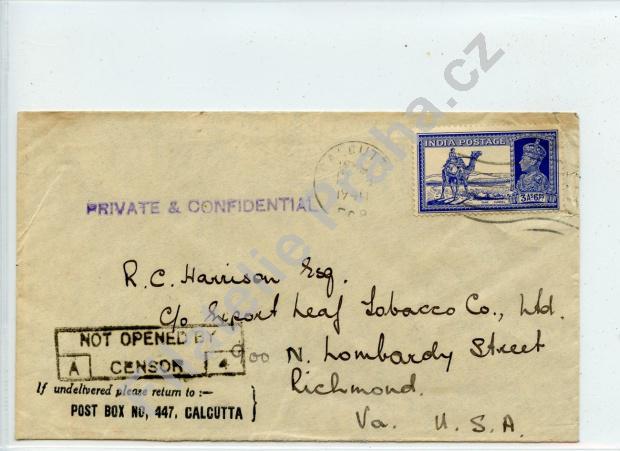 CALCUTTA
INDIA POSTAGE
3As6P
PRIVATE & CONFIDENTIAL
R.C. Harrison Esq.
c/o Export Leaf Tobacco Co., Ltd.
900 N. Lombardy Street
Richmond.
Va. U.S.A.
NOT OPENED BY
A CENSOR 4
If undelivered please return to :—
POST BOX NO, 447, CALCUTTA
Filatelie Praha.cz